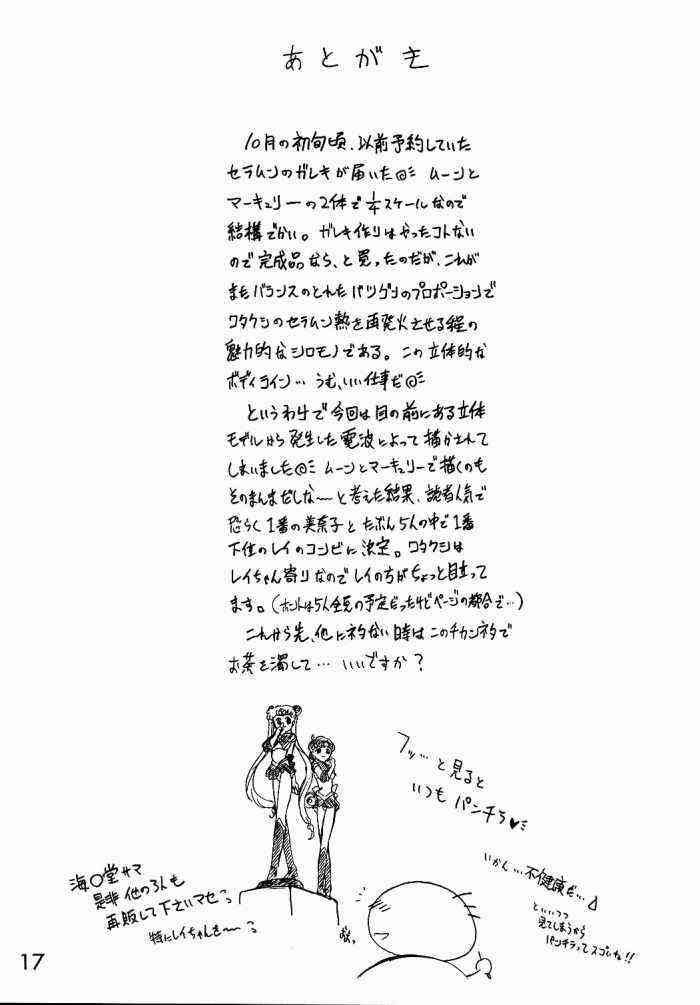 あとがき
10月の初旬頃、以前予約していた
セラムンのガレキが届いた◎ミ ムーンと
マーキュリーの2体で1/4スケールなので
結構でかい。ガレキ作りはやったコトない
ので完成品なら、と買ったのだが、これが
またバランスのとれたバツグンのプロポーションで
ワタクシのセラムン熱を再発火させる程の
魅力的なシロモノである。この立体的な
ボディライン…うむ、いい仕事だ◎ミ
というわけで今回は目の前にある立体
モデルから発生した電波によって描かされて
しまいました◎ミ ムーンとマーキュリーで描くのも
そのまんまだしな〜と考えた結果、読者人気で
恐らく1番の美奈子とたぶん5人の中で1番
下位のレイのコンビに決定。ワタクシは
レイちゃん寄りなのでレイの方がちょっと目立って
ます。(ホントは5人全員の予定だったけどページの都合で…)
これから先、他にネタない時はこのチカンネタで
お茶を濁して…いいですか?
フッ…と見ると
いつもパンチラ♥ミ
海〇堂サマ
是非他の3人も
再販して下さいマセっ
特にレイちゃんを〜っ
いかん…不健康だ…
といいつつ
見てしまうから
パンチラってスゴいね!!
17